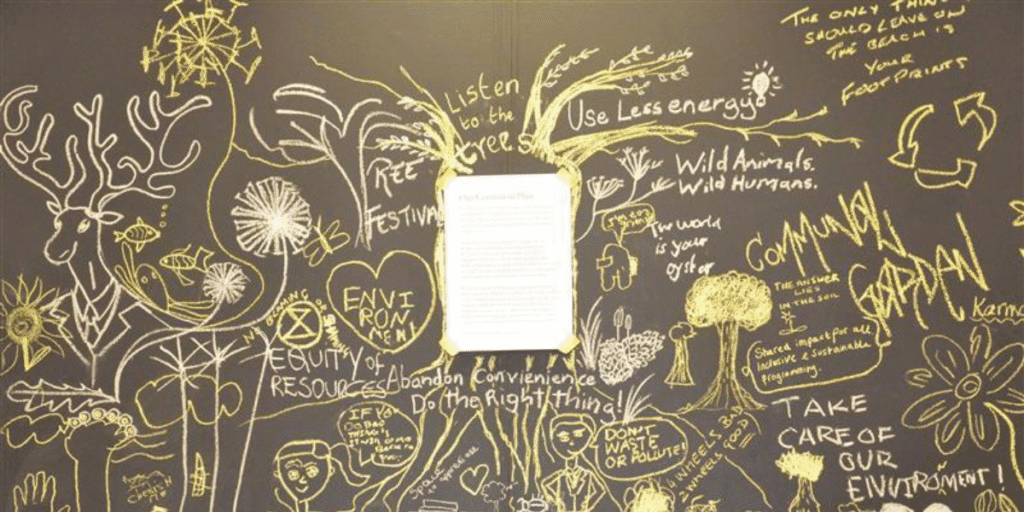 THE ONLY THING
SHOULD LEAVE ON
THE BEACH IS
YOUR
FOOTPRINTS
Listen
to the
trees
Use Less energy
Wild Animals.
Wild Humans.
REE
FESTIVAL
The world
is your
oyster
COMMUNAL
GARDAN
THE ANSWER
LIES
IN THE SOIL
Karma
ENVI
RON
MENT
EQUITY OF
RESOURCES
Shared impact for all
Inclusive & Sustainable
Programming.
Abandon Convienience
Do the Right thing!
IF YOU
DO BAD
THINGS
DON'T
WASTE
OR POLLUTE!
4 WHEELS BAD
2 WHEELS GOOD
TAKE
CARE OF
OUR
ENVIROMENT!